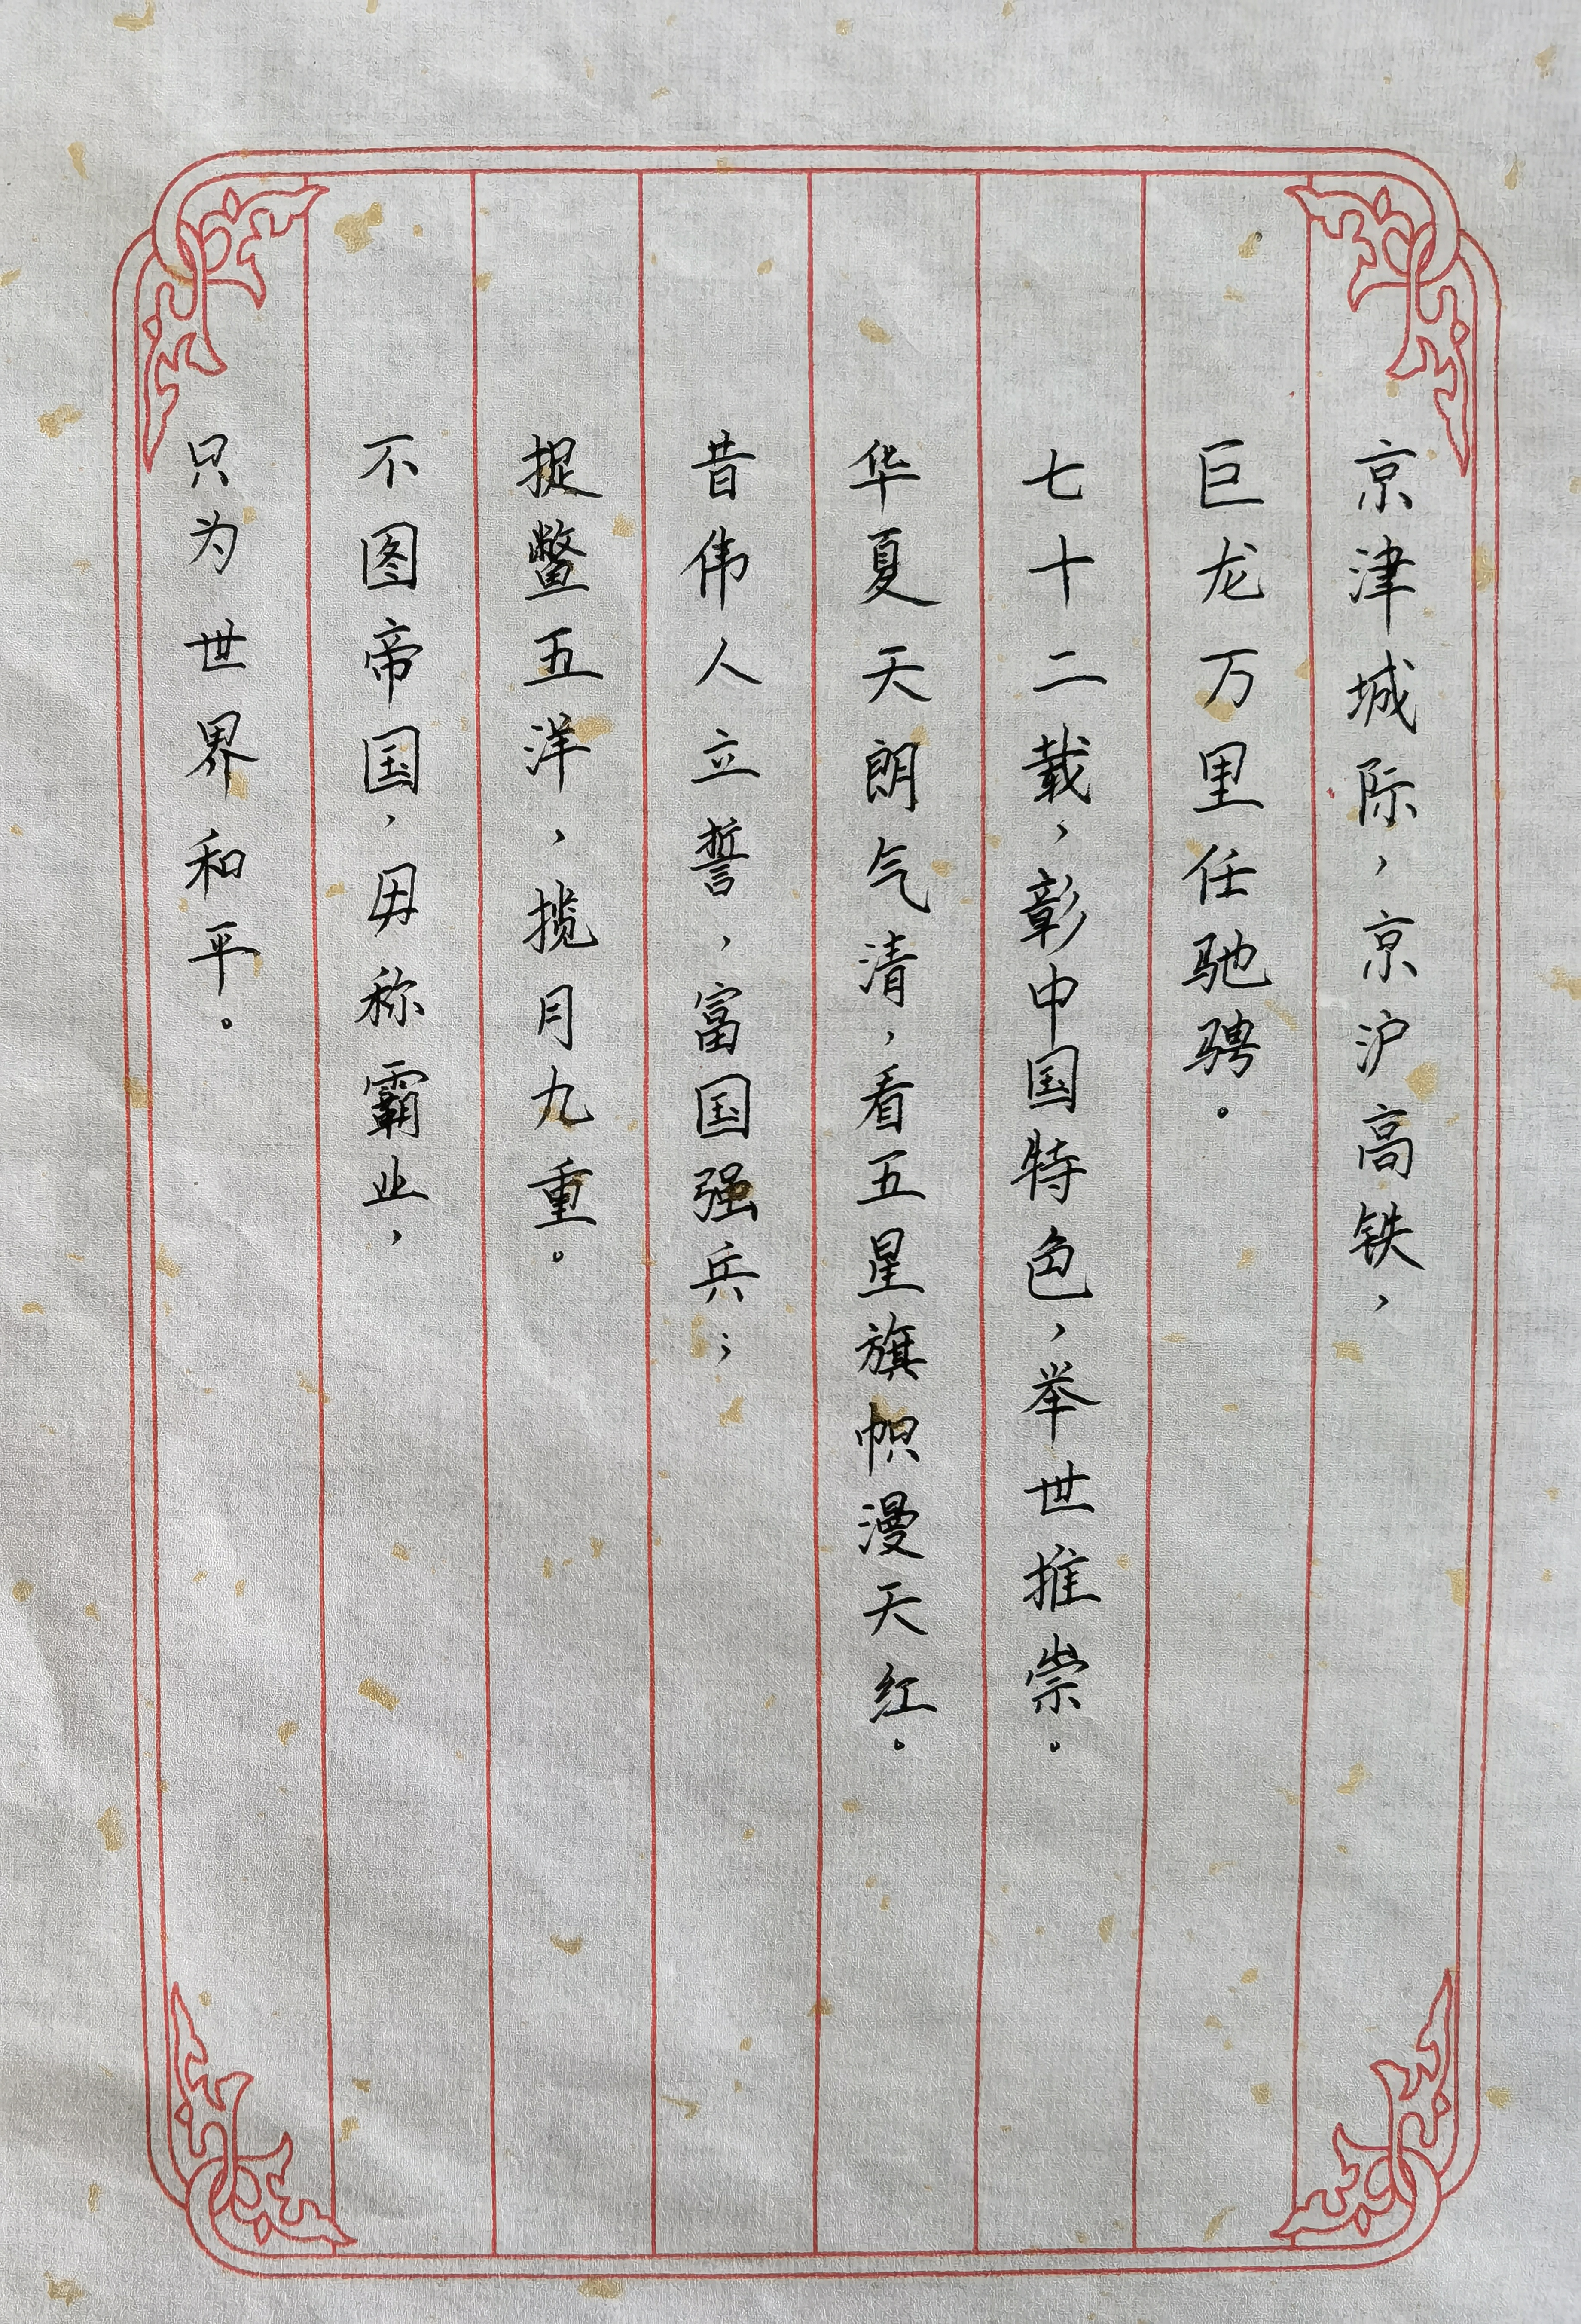 京津城际，京沪高铁，
巨龙万里任驰骋。
七十二载，彰中国特色，举世推崇。
华夏天朗气清，看五星旗帜漫天红。
昔伟人立誓，富国强兵；
捉鳖五洋，揽月九重。
不图帝国，毋称霸业，
只为世界和平。